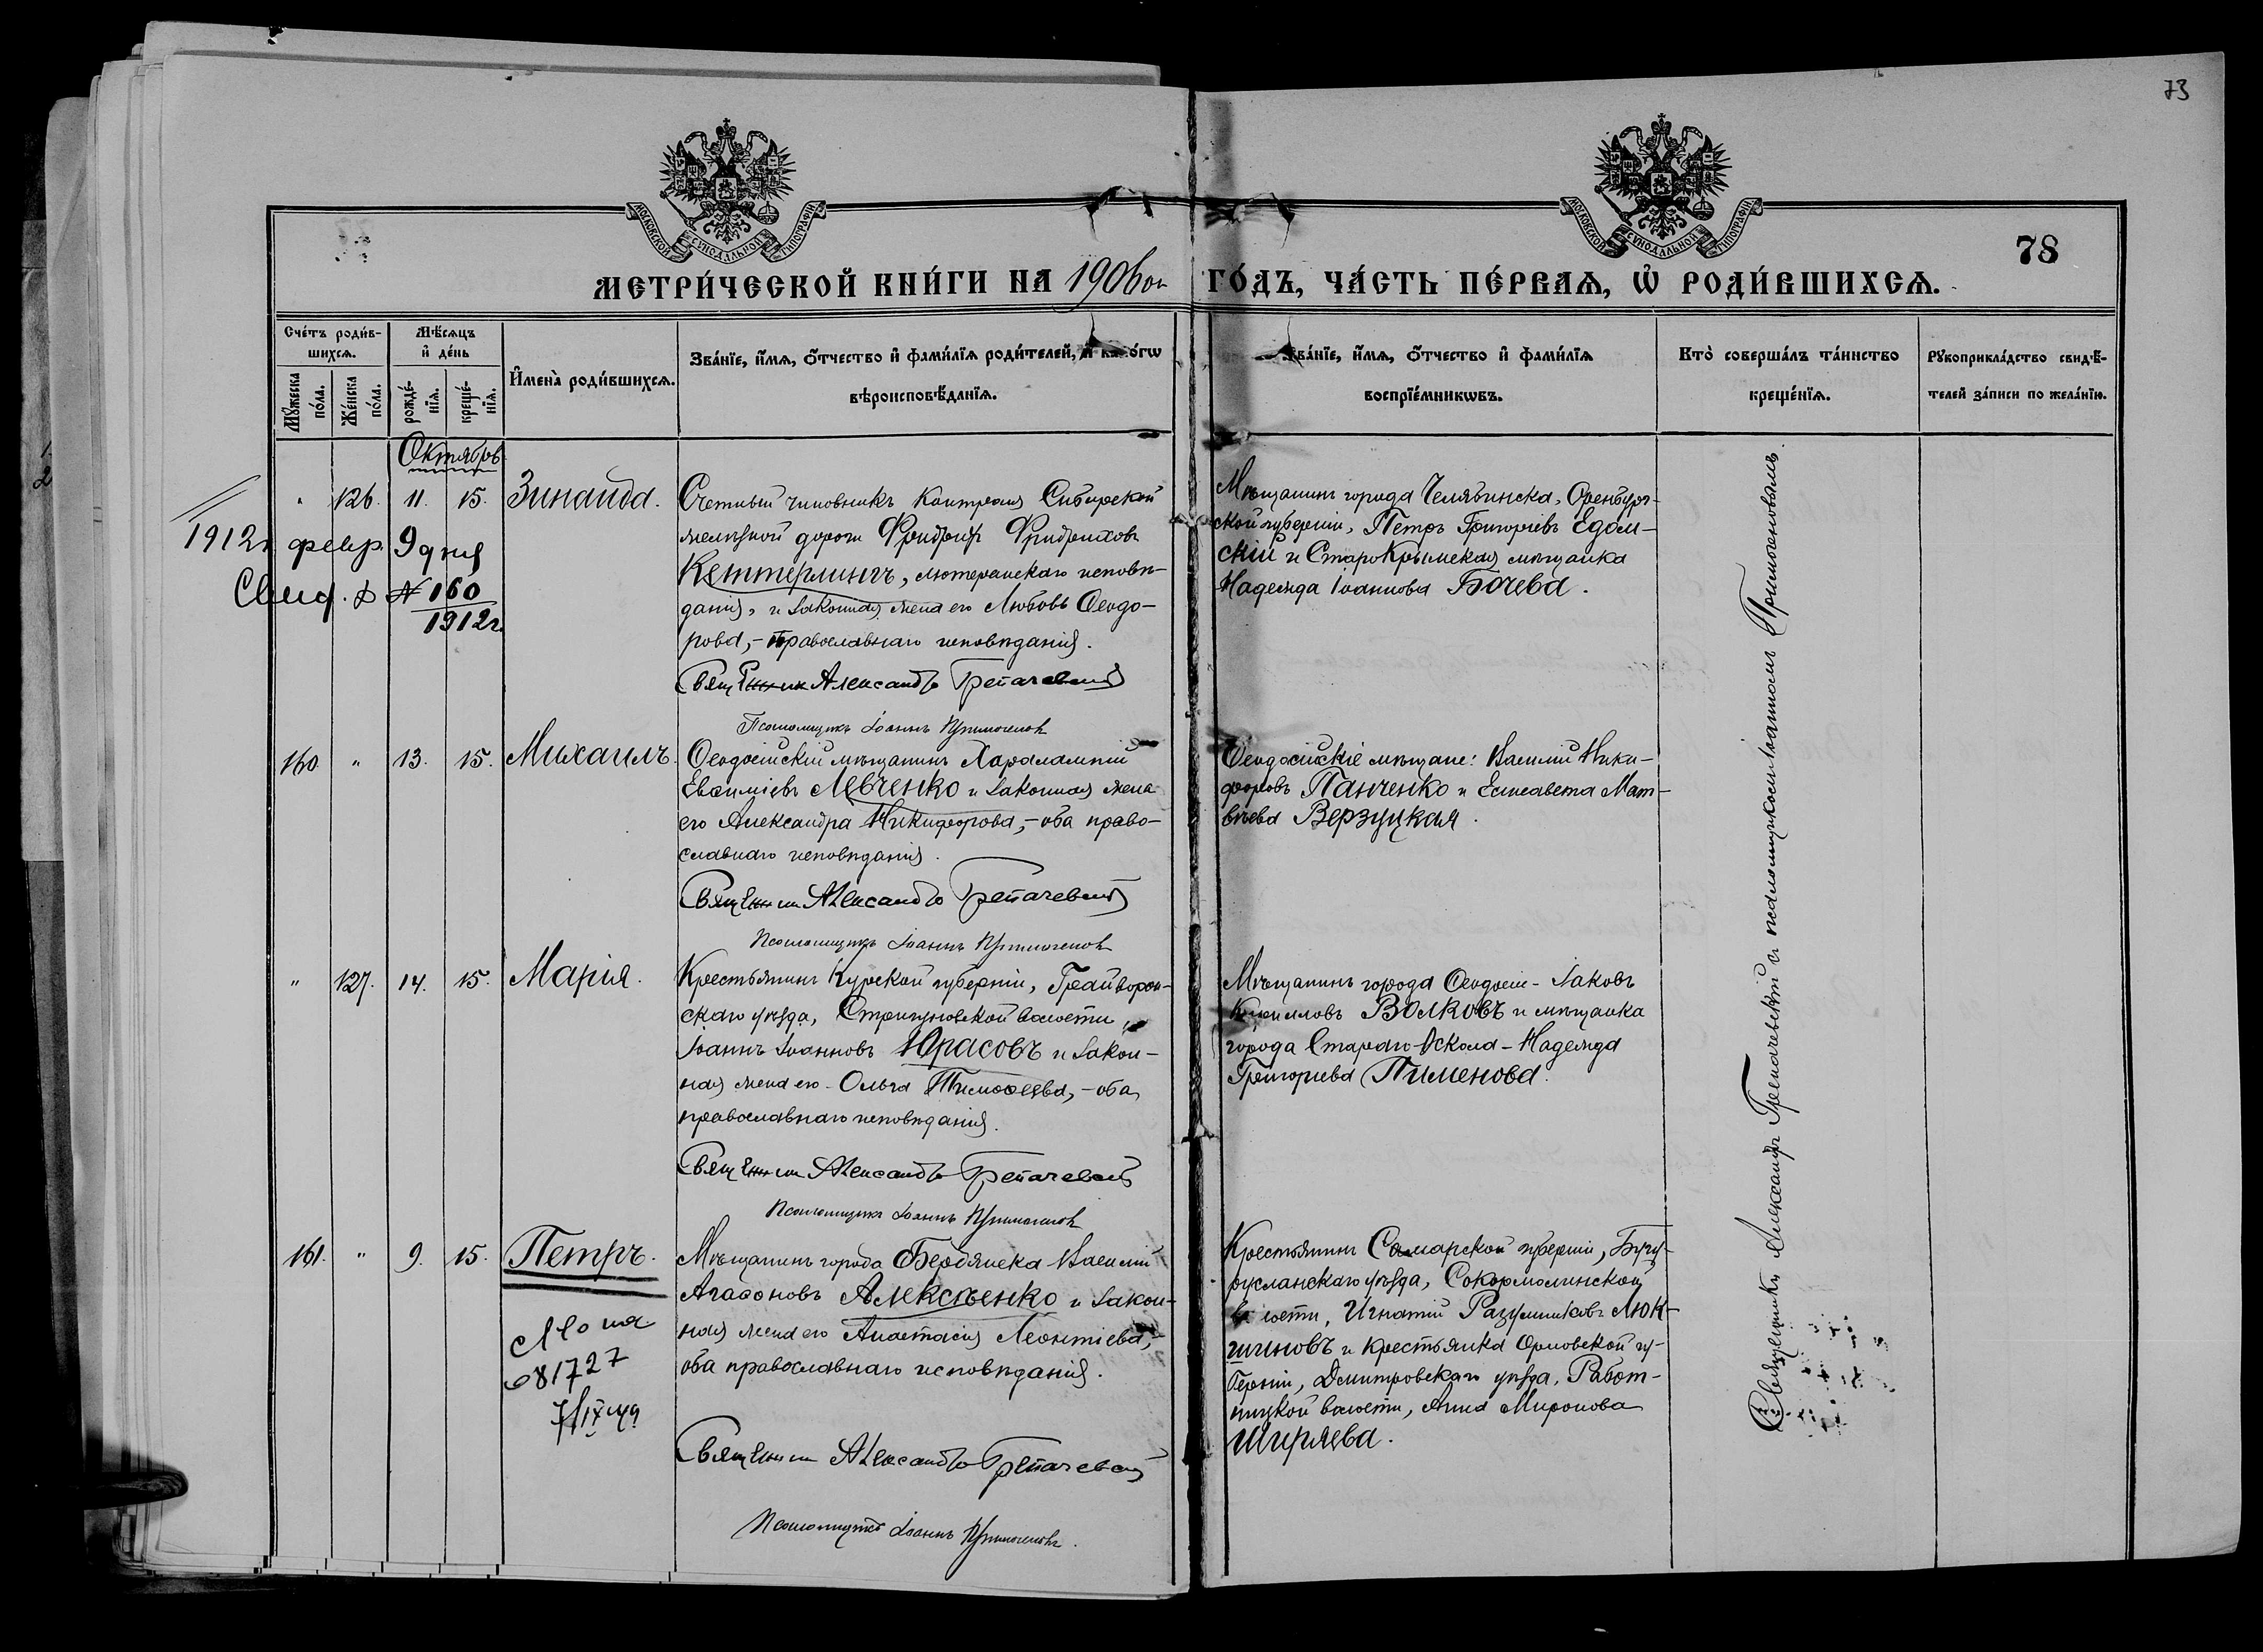 73
МОСКОВСКОЙ СѴНОДАЛЬНОЙ ТИПОГРАФІИ
МОСКОВСКОЙ СѴНОДАЛЬНОЙ ТИПОГРАФІИ
78
МЕТРИ́ЧЕСКОЙ КНИ́ГИ НА 1906 ой ГО́ДЪ, ЧА́СТЬ ПЕ́РВАѦ, Ѡ҆ РОДИ́ВШИХСѦ.
Сче́тъ роди́в-
шихсѧ.
Мꙋ́жеска по́ла.
Же́нска по́ла.
Мѣ́сѧцъ
и҆ де́нь
рожде́-
нїѧ.
креще́-
нїѧ.
И҆мена̀ роди́вшихсѧ.
Зва́нїе, и҆́мѧ, ѻ҆́тчество и҆ фами́лїѧ роди́телей, и҆ како́гѡ
вѣроисповѣ́данїѧ.
Зва́нїе, и҆́мѧ, ѻ҆́тчество и҆ фами́лїѧ
воспрїе́мникѡвъ.
Кто̀ соверша́лъ та́инство
креще́нїѧ.
Рꙋкоприкла́дство свидѣ́-
телей за́писи по жела́нїю.
Октябрь
" 126. 11. 15. Зинаида.
Счетный чиновникъ Контроля Сибирской
желѣзной дороги Фридрихъ Фридриховъ
Кеттерлингъ, лютеранскаго исповѣ-
данія, и законная жена его Любовь Ѳеодо-
рова, - православнаго исповѣданія.
Священник Александръ
Псаломщикъ Іоаннъ
Мѣщанинъ города Челябинска, Оренбург-
ской губерніи, Петръ Григоріевъ Едом-
скій и СтароКрымская мѣщанка
Надежда Іоаннова Бочева.
1912г. февр. 9 дня
Свид. № 160
1912г.
160 " 13. 15. Михаилъ.
Ѳеодосійскій мѣщанинъ Харалампій
Евѳиміевъ Левченко и законная жена
его Александра Никифорова, - оба право-
славнаго исповѣданія.
Священник Александръ
Псаломщикъ Іоаннъ
Ѳеодосійскіе мѣщане: Василій Ники-
форовъ Панченко и Елисавета Мат-
вѣева Верзуцкая.
" 127. 14. 15. Марія.
Крестьянинъ Курской губерніи, Грайворон-
скаго уѣзда, Стригуновской волости,
Іоаннъ Іоанновъ Юрасовъ и закон-
ная жена его - Ольга Тимоѳеева, - оба
православнаго исповѣданія.
Священник Александръ
Псаломщикъ Іоаннъ
Мѣщанинъ города Ѳеодосіи - Іаковъ
Кирилловъ Волковъ и мѣщанка
города Стараго-Оскола - Надежда
Григорьева Пименова.
161. " 9. 15. Петръ.
681727
Мѣщанинъ города Бердянска Василій
Агаѳоновъ Алексѣенко и закон-
ная жена его Анастасія Леонтіева, -
оба православнаго исповѣданія.
Священник Александръ
Псаломщикъ Іоаннъ
Крестьянинъ Самарской губерніи, Бугу-
русланскаго уѣзда, Сокормолинской
волости, Игнатій Разумниковъ Люк-
шиновъ и крестьянка Орловской гу-
берніи, Дмитровскаго уѣзда, Работ-
ницкой волости, Анна Миронова
Ширяева.
Священникъ Александръ и псаломщикомъ Іоанномъ